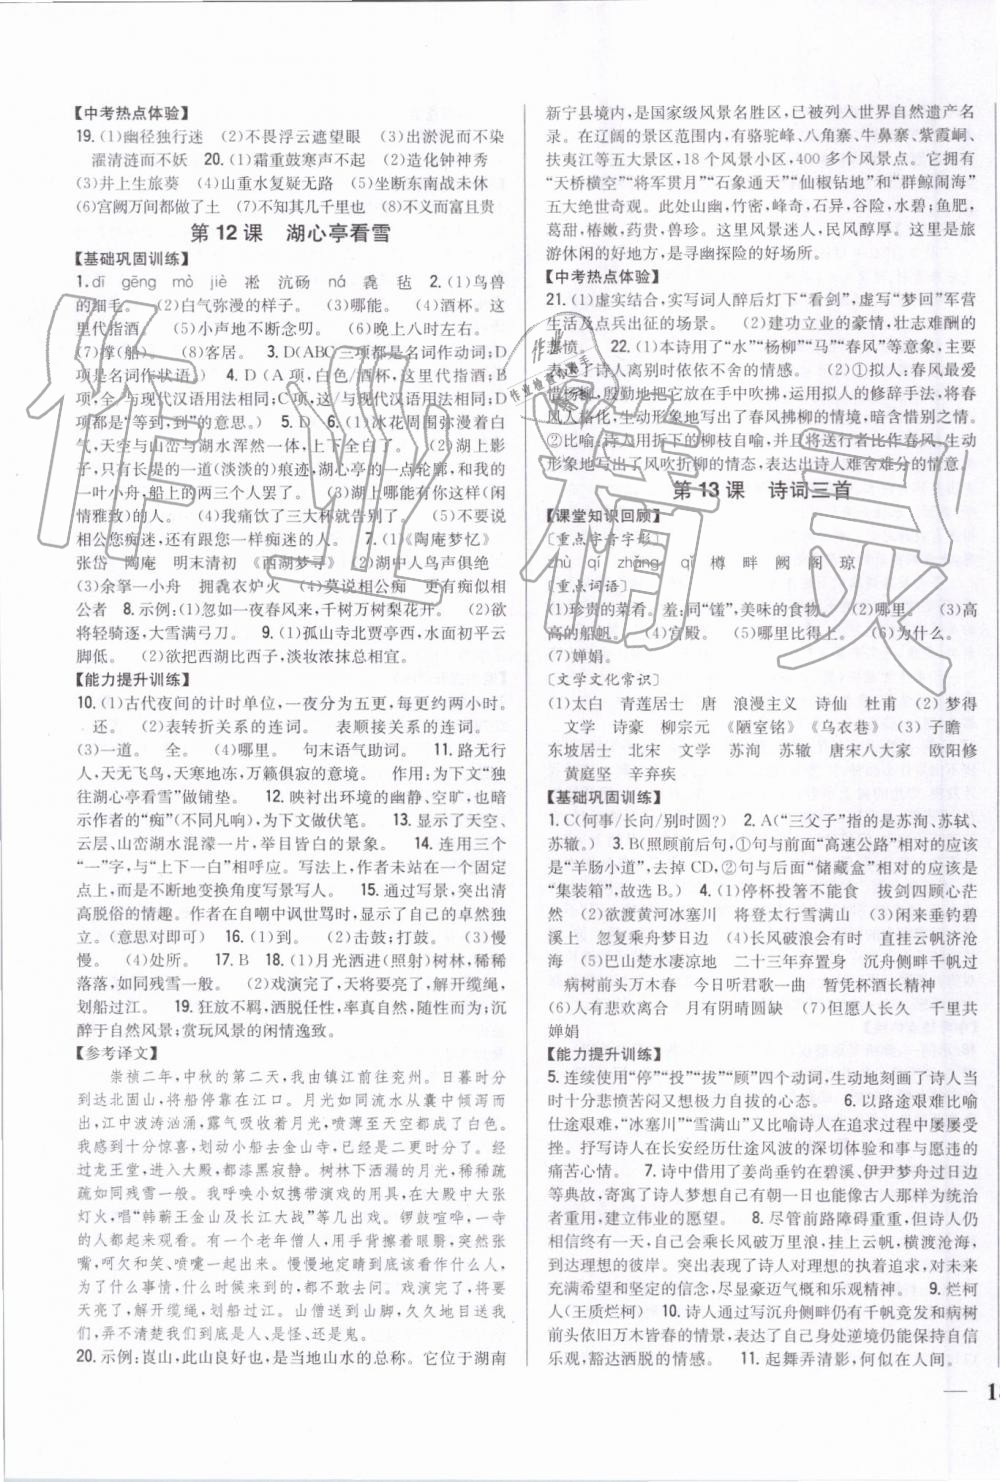 【中考热点体验】
19. (1)幽径独行迷　(2)不畏浮云遮望眼　(3)出淤泥而不染
濯清涟而不妖　20. (1)霜重鼓寒声不起　(2)造化钟神秀
(3)井上生旅葵　(4)山重水复疑无路　(5)坐断东南战未休
(6)宫阙万间都做了土　(7)不知其几千里也　(8)不义而富且贵
第 12 课　湖心亭看雪
【基础巩固训练】
1. dī　gēng　mò　jiè　凇　沆砀　ná　毳　毡　2. (1)鸟兽
的细毛。　(2)白气弥漫的样子。　(3)哪能。　(4)酒杯。这
里代指酒。　(5)小声地不断念叨。　(6)晚上八时左右。
(7)撑(船)。　(8)客居。　3. D(ABC 三项都是名词作动词;D
项是名词作状语)　4. D(A 项,白色/酒杯,这里代指酒;B
项,全/与现代汉语用法相同;C 项,这/与现代汉语用法相同;D
项都是“等到,到”的意思。)　5. D　6. (1)冰花周围弥漫着白
气,天空与山峦与湖水浑然一体,上下全白了。　(2)湖上影
子,只有长堤的一道(淡淡的)痕迹,湖心亭的一点轮廓,和我的
一叶小舟,船上的两三个人影罢了。　(3)哪能还有这样(闲
情雅致)的人呢?　(4)我痛饮了三大杯就告别了。　(5)不要说
相公您痴迷,还有跟您一样痴迷的人。　7. (1)《陶庵梦忆》
张岱　陶庵　明末清初　《西湖梦寻》　(2)湖中人鸟声俱绝
(3)余拏一小舟　拥毳衣炉火　(4)莫说相公痴　更有痴似相
公者　8. 示例:(1)忽如一夜春风来,千树万树梨花开。　(2)欲
将轻骑逐,大雪满弓刀。　9. (1)孤山寺北贾亭西,水面初平云
脚低。　(2)欲把西湖比西子,淡妆浓抹总相宜。
【能力提升训练】
10. (1)古代夜间的计时单位,一夜分为五更,每更约两小时。
还。　(2)表转折关系的连词。　表顺接关系的连词。
(3)一道。　全。　(4)哪里。　句末语气助词。　11. 路无行
人,天无飞鸟,天寒地冻,万籁俱寂的意境。　作用:为下文“独
往湖心亭看雪”做铺垫。　12. 映衬出环境的幽静、空旷,也暗
示作者的“痴”(不同凡响),为下文做伏笔。　13. 显示了天空、
云层、山峦湖水混濛一片,举目皆白的景象。　14. 连用三个
“一”字,与“上下一白”相呼应。写法上,作者未站在一个固定
点上,而是不断地变换角度写景写人。　15. 通过写景,突出清
高脱俗的情趣。作者在自嘲中讽世骂时,显示自己的卓然独
立。(意思对即可)　16. (1)到。　(2)击鼓;打鼓。　(3)慢
慢。　(4)处所。　17. B　18. (1)月光洒进(照射)树林,稀稀
落落,如同残雪一般。　(2)戏演完了,天将要亮了,解开缆绳,
划船过江。　19. 狂放不羁,洒脱任性,率真自然,随性而行;沉
醉于自然风景;赏玩风景的闲情逸致。
【参考译文】
崇祯二年,中秋的第二天,我由镇江前往兖州。日暮时分
到达北固山,将船停靠在江口。月光如同从囊中倾泻而
出,江中波涛汹涌,露气吸收着月光,喷薄至天空都成了白色。
我感到十分惊喜,划动小船去金山寺,已经是二更时分。经
过龙王堂,进入大殿,都漆黑寂静。树林下洒漏的月光,稀稀疏
疏如同残雪一般。我呼唤小奴携带演戏的用具,在大殿中大张
灯火,唱“韩蕲王金山及长江大战”等几出戏。锣鼓喧哗,一寺
的人都起来观看。有一个老年僧人,用手背擦揉着眼翳,突然张
嘴,呵欠和笑、喷嚏一起来了。慢慢地定睛看作什么人,为
了什么事情,什么时候来到的,都不敢问。戏演完了,将要
天亮了,解开缆绳,划船过江。山僧送到山脚,久久地目送我
们,不知道我们到底是人、是怪、还是鬼。
20. 示例:崀山,此山良好也,是当地山水的总称。它位于湖南
新宁县境内,是国家级风景名胜区,已被列入世界自然遗产名
录。在辽阔的景区范围内,有骆驼峰、八角寨、牛鼻寨、紫霞峒、
扶夷江等五大景区,18 个风景小区,400 多个风景点。它拥有
“天桥横空”“将军贯月”“石象通天”“仙椒钻地”和“群鲸闹海”
五大绝世奇观。此处山幽,竹密,峰奇,石异,谷险,水碧;鱼肥,
葛甜,椿嫩,药贵,兽珍。这里风景迷人,民风醇厚。这里是旅
游休闲的好地方,是寻幽探险的好场所。
【中考热点体验】
21. (1)虚实结合,实写词人醉后灯下“看剑”,虚写“梦回”军营
生活及点兵出征的场景。　(2)建功立业的豪情,壮志难酬的
悲愤。　22. (1)本诗用了“水”“杨柳”“马”“春风”等意象,表
达了诗人离别时依依不舍的情感。　(2)①拟人:春风最爱
惜杨柳,殷勤地把它放在手中吹拂,运用拟人的修辞手法,将春
风人格化,生动形象地写出了春风拂柳的情境,暗含惜别之情。
②比喻:诗人用折下的柳枝自喻,并且把送行者比作春风,生动
形象地写出了风吹折柳的情态,表达出诗人难舍难分的情意。
第 13 课　诗词三首
【课堂知识回顾】
[重点字音字形]
zhù　qí　zhǎng　qǐ　樽　畔　阙　阁　琼
[重点词语]
(1)珍贵的菜肴。羞:同“馐”,美味的食物。　(2)哪里。　(3)高
高的船帆。　(4)宫殿。　(5)哪里比得上。　(6)为什么。
(7)婵娟。
[文学文化常识]
(1)太白　青莲居士　唐　浪漫主义　诗仙　杜甫　(2) 梦得
文学　诗豪　柳宗元　《陋室铭》　《乌衣巷》　(3) 子瞻
东坡居士　北宋　文学　苏洵　苏辙　唐宋八大家　欧阳修
黄庭坚　辛弃疾
【基础巩固训练】
1. C(何事/长向/别时圆?)　2. A(“三父子”指的是苏洵、苏轼、
苏辙。)　3. B(照顾前后句,①句与前面“高速公路”相对的应该
是“羊肠小道”,去掉 CD,②句与前面“储藏盒”相对的应该是
“集装箱”,故选 B。)　4. (1)停杯投箸不能食　拔剑四顾心茫
然　(2)欲渡黄河冰塞川　将登太行雪满山　(3)闲来垂钓碧
溪上　忽复乘舟梦日边　(4)长风破浪会有时　直挂云帆济沧
海　(5)巴山楚水凄凉地　二十三年弃置身　沉舟侧畔千帆过
病树前头万木春　今日听君歌一曲　暂凭杯酒长精神
(6)人有悲欢离合　月有阴晴圆缺　(7)但愿人长久　千里共
婵娟
【能力提升训练】
5. 连续使用“停”“投”“拔”“顾”四个动词,生动地刻画了诗人当
时十分悲愤苦闷又想极力自拔的心态。　6. 以路途艰难比喻
仕途艰难,“冰塞川”“雪满山”又比喻诗人在追求过程中屡屡受
挫。抒写诗人在长安经历仕途风波的深切体验和事与愿违的
痛苦心情。　7. 诗中运用了姜尚垂钓在碧溪、伊尹梦舟过日边
等典故,寄寓了诗人梦想自己也能像古人那样为统治
者重用,建立伟业的愿望。　8. 尽管前路障碍重重,但诗人仍
相信终有一天,自己会乘长风破万里浪,挂上云帆,横渡沧海,
到达理想的彼岸。突出表现了诗人对理想的执着追求,对未来
充满希望和坚定的信念,尽显豪迈气概和乐观精神。　9. 烂柯
人(王质烂柯)　10. 诗人通过写沉舟侧畔仍有千帆竞发和病树
前头依旧万木皆春的情景,表达了自己身处逆境仍能保持自信
乐观,豁达洒脱的情感。　11. 起舞弄清影,何似在人间。
作业精灵